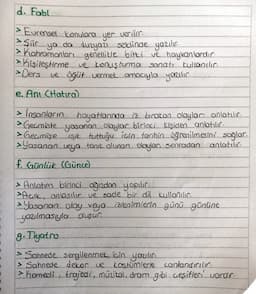 d. Fabl
> Evrensel konulara yer verilir.
> Şiir ya da düzyazı şeklinde yazılır.
> Kahramanları genellikle bitki ve hayvanlardır.
> Kişileştirme ve konuşturma sanatı kullanılır.
> Ders ve öğüt vermek amacıyla yazılır.
e. Anı (Hatıra)
> İnsanların hayatlarında iz bırakan olaylar anlatılır.
> Geçmişte yaşanan olaylar birinci kişiden anlatılır.
> Geçmişe ışık tuttuğu için tarihin öğrenilmesini sağlar.
> Yaşanan veya tanık olunan olaylar sonradan anlatılır.
f. Günlük (Günce)
> Anlatım birinci ağızdan yapılır.
> Açık, anlaşılır ve sade bir dil kullanılır.
> Yaşanan olay veya izlenimlerin günü gününe
yazılmasıyla oluşur.
g. Tiyatro
> Sahnede sergilenmek için yazılır.
> Sahnede dekor ve kostümlerle canlandırılır.
> Komedi, trajedi, müzikal, dram gibi çeşitleri vardır.